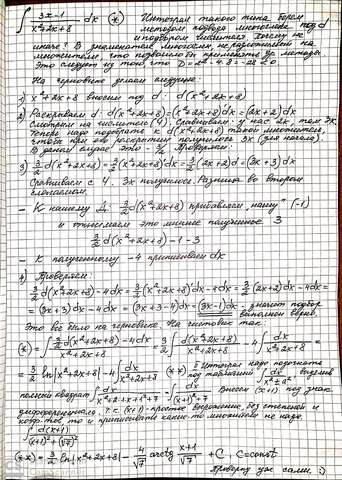 ∫ (3x-1)/(x²+2x+8) dx (*) Интеграл такого типа берем
методом подвода многочлена под d
и подбором Почему не
иначе? В знаменателе многочлен не
множители, что
Это следует из того что D = 2² - 4·8 = -28 < 0
На черновике делаем следующее:
1) x²+2x+8 вносим под d: d(x²+2x+8)
2) Раскрываем d: d(x²+2x+8) = (x²+2x+8)'dx = (2x+2)dx
Смотрим на числитель (*) сравниваем: у нас 2x, там 3x.
Теперь надо подобрать к d(x²+2x+8) такой множитель,
чтобы при его раскрытии получили 3x (для начала).
В данном случае это = 3/2 Проверяем:
3) 3/2 d(x²+2x+8) = 3/2 (x²+2x+8)'dx = 3/2 (2x+2)dx = (3x+3)dx
Сравниваем с 4. 3x получилось. Разница во втором
слагаемом.
- К нашему Д - 3/2 d(x²+2x+8) прибавляем нашу "(-1)
и отнимаем это лишнее полученное 3
3/2 d(x²+2x+8) -1 -3
- К полученному -4 приписываем dx
4) Проверяем:
3/2 d(x²+2x+8) - 4dx = 3/2 (x²+2x+8)'dx - 4dx = 3/2 (2x+2)dx - 4dx =
= (3x+3)dx - 4dx = (3x+3-4)dx = (3x-1)dx - значит подбор
выполнен верно.
Это все было на черновике. На чистовик так
(*) = ∫ (3/2 d(x²+2x+8) - 4dx)/(x²+2x+8) = 3/2 ∫ d(x²+2x+8)/(x²+2x+8) - 4∫ dx/(x²+2x+8) =
= 3/2 ln|x²+2x+8| - 4∫ dx/(x²+2x+8) (**) 2 Интеграл надо подогнать
под табличный ∫ dx/(x²±a²) выделив
полный квадрат ∫ dx/(x²+2·x·1+1²+7) = ∫ dx/((x+1)²+7) Вносим (x+1) под знак
дифференциала, т.к. (x+1) - простое выражение без степеней и
коэф-тов, то и приписывать какие-то множители не надо.
∫ d(x+1)/((x+1)²+(√7)²)
(**) = 3/2 ln|x²+2x+8| - 4/√7 arctg (x+1)/√7 + C, C=const
Проверку уж сами. :)